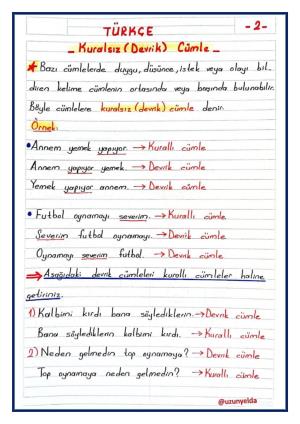 TÜRKÇE
- 2 -
_ Kuralsız (Devrik) Cümle _
* Bazı cümlelerde duygu, düşünce, istek veya olayı bil-
diren kelime cümlenin ortasında veya başında bulunabilir.
Böyle cümlelere kuralsız (devrik) cümle denir.
Örnek:
• Annem yemek yapıyor. → Kurallı cümle
Annem yapıyor yemek. → Devrik cümle
Yemek yapıyor annem. → Devrik cümle
• Futbol oynamayı severim. → Kurallı cümle
Severim futbol oynamayı. → Devrik cümle
Oynamayı severim futbol. → Devrik cümle
⇒ Aşağıdaki devrik cümleleri kurallı cümleler haline
getiriniz.
1) Kalbimi kırdı bana söylediklerin. → Devrik cümle
Bana söylediklerin kalbimi kırdı. → Kurallı cümle
2) Neden gelmedin top oynamaya? → Devrik cümle
Top oynamaya neden gelmedin? → Kurallı cümle
@uzunyelda